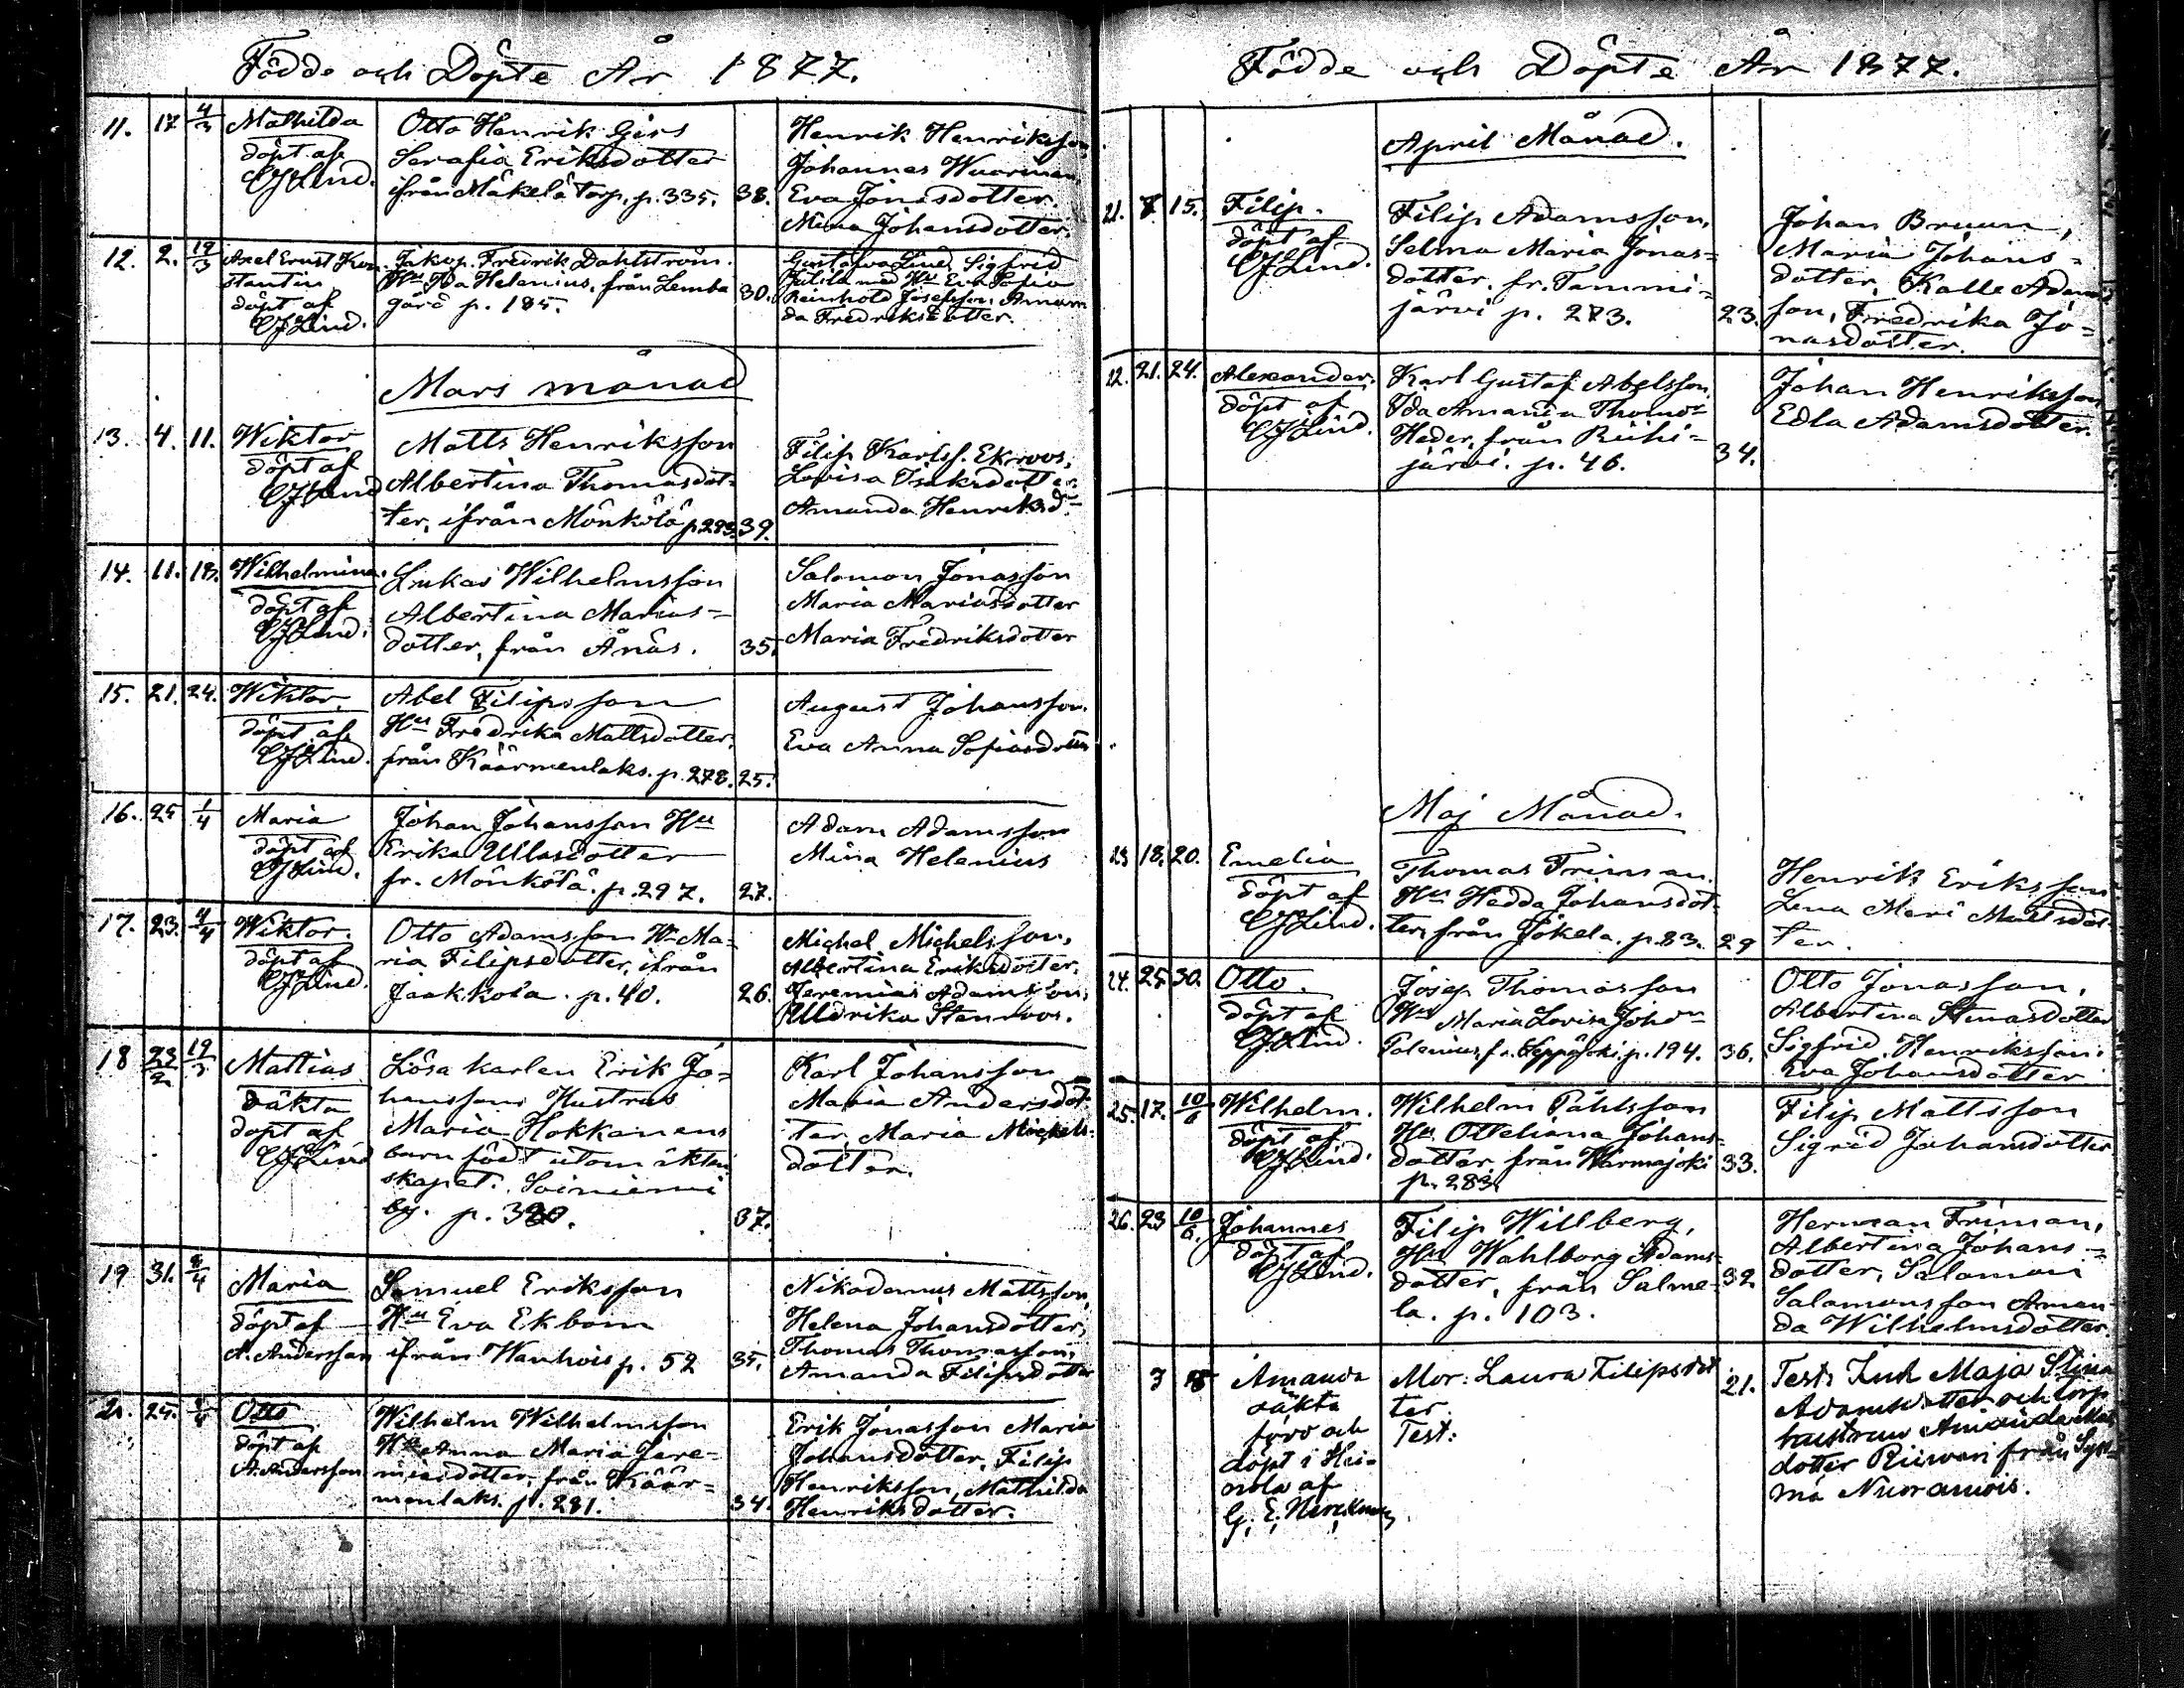 Födde och Döpte År 1877.
11. 17 4/3 Mathilda
döpt af
CJLind.
Otto Henrik Girs
Serafia Eriksdotter
ifrån Mäkelä torp. p. 335. 38.
Henrik Henriksson,
Johannes
Eva Jonasdotter.
Mina Johansdotter.
12. 2. 12/3 Axel Ernst Kon-
stantin
döpt af
CJLind.
Jakop Fredrik Dahlström.
Hu Ida Helenius, från Lemba
gård p. 185. 30.
Gustafva Lind, Sigfrid
med Hu Eva Sofia
Reinhold Josefsson, Aman
da Fredriksdotter.
Mars månad
13. 4. 11. Wiktor
döpt af
CJLind
Matts Henriksson
Albertina Thomasdot-
ter, ifrån Mönkölä p. 293. 39.
Filip Karlss. Ekroos,
Lovisa Isaksdotter
Amanda Henriksdr
14. 11. 18. Wilhelmina.
döpt af
CJLind.
Lukas Wilhelmsson
Albertina Marias-
dotter, från Ånäs. 35.
Salomon Jonasson
Maria Mariasdotter
Maria Fredriksdotter
15. 21. 24. Wiktor.
döpt af
CJLind.
Abel Filipsson
Hu Fredrika Mattsdotter,
från Käärmenlaks. p. 278. 25.
August Johansson.
Eva Anna Sofiasdotter
16. 25 1/4 Maria
döpt af
CJLind.
Johan Johansson Hu
Erika Ullasdotter
fr. Mönkölä. p. 297. 27.
Adam Adamsson
Mina Helenius
17. 23. 4/4 Wiktor.
döpt af
CJLind.
Otto Adamsson Hu Ma-
ria Filipsdotter, ifrån
Jaakkola. p. 40. 26.
Michel Michelsson,
Albertina Eriksdotter.
Jeremias Adamsson,
Uldrika Stenroos.
18 23/2 19/3 Mattias
oäkta
döpt af
CJLind
Lösa karlen Erik Jo-
hanssons Hustrus
Maria Hokkanens
barn födt utom äkten
skapet. Soiniemi
by. p. 37.
Karl Johansson
Maria Andersdot-
ter, Maria Mickels-
dotter.
19 31. 8/4 Maria
döpt af
A. Andersson
Samuel Eriksson
Hu Eva Ekbom
ifrån Wanhois p. 52 35.
Nikodemus Mattsson,
Helena Johansdotter,
Thomas Thomasson,
Amanda Filipsdotter
20. 25. 8/4 Otto
döpt af
A. Andersson
Wilhelm Wilhelmsson
Hu Anna Maria Jere-
miasdotter, från Käär-
menlaks. p. 281. 34.
Erik Jonasson Maria
Johansdotter, Filip
Henriksson, Mathilda
Henriksdotter.
Födde och Döpte År 1877.
April Månad.
21. 8. 15. Filip.
döpt af
CJLind.
Filip Adamsson,
Selma Maria Jonas-
dotter. fr. Tammi-
järvi p. 273. 23.
Johan Bruun,
Maria Johans-
dotter, Kalle Adams
son, Fredrika Jo-
nasdotter.
22. 21. 24. Alexander.
döpt af
CJLind.
Karl Gustaf Abelsson
Ida Amanda Thomasdr
Heder, från Riihi-
järvi. p. 46. 34.
Johan Henriksson
Edla Adamsdotter.
Maj Månad.
23 18. 20. Emelia
döpt af
CJLind.
Thomas Friman.
Hu Hedda Johansdot-
ter, från Jokela. p. 83. 29
Henrik Eriksson
Lena Mari Mattsdot
ter.
24. 25 30. Otto.
döpt af
CJLind.
Josep Thomasson
Hu Maria Lovisa Johdr
Palenius, fr. Seppäjoki p. 194. 36.
Otto Jonasson,
Albertina Stinasdotter
Sigfrid Henriksson.
Eva Johansdotter
25. 17. 10/6 Wilhelm.
döpt af
CJLind.
Wilhelm Påhlsson
Hu. Otteliana Johans-
dotter, från Warmajoki 33.
p. 283.
Filip Mattsson
Sigrid Johansdotter
26. 23 10/6. Johannes
döpt af
CJLind.
Filip Willberg,
Hu Wahlborg Adams-
dotter, från Salme- 32
la. p. 103.
Herman Friman,
Albertina Johans-
dotter, Salomon
Salomonsson Aman-
da Wilhelmsdotter.
3 18 Amanda
oäkta
född och
döpt i Hei-
nola af
G. E.
Mor: Laura Filipsdot
ter. 21.
Test:
Test: Enk Maja Stina
Adamsdotter och torp
hustrun Amanda Mats
dotter Riiwari från Sys-
mä Nuoramois.